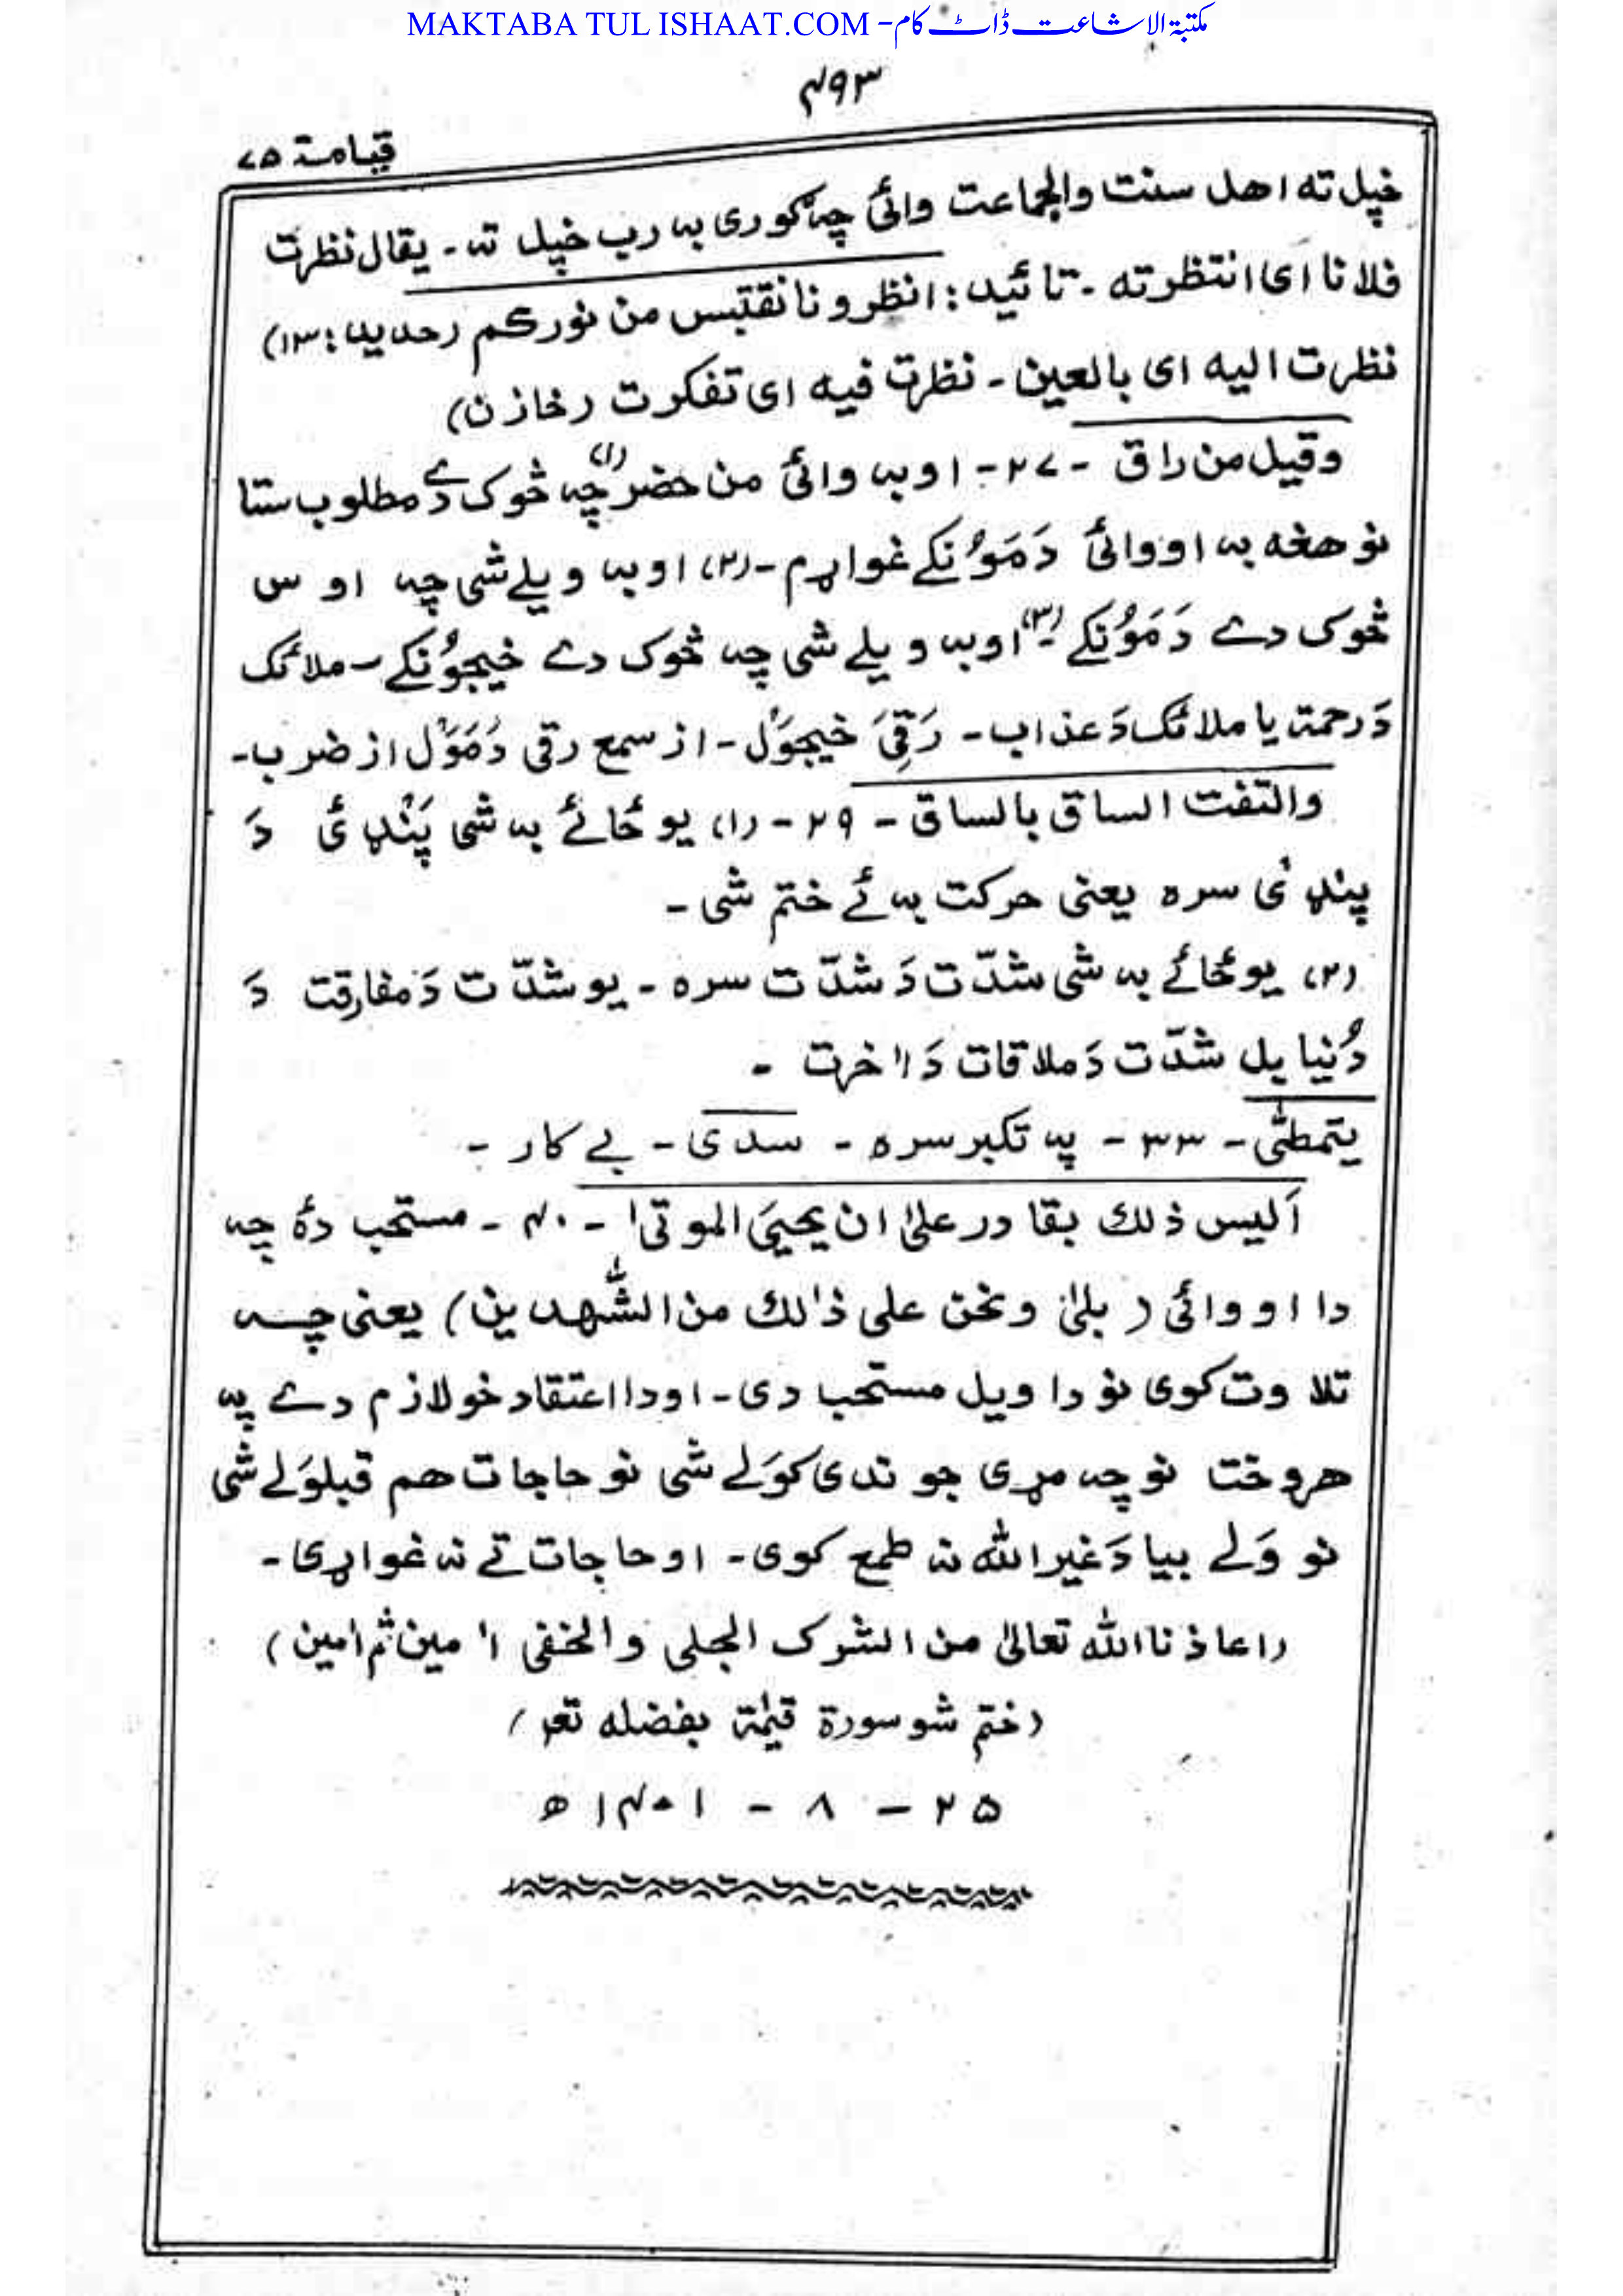 MAKTABA TUL ISHAAT.COM - مکتبة الاشاعت ڈاٹ کام
۴۹۳
قیامة ۷۵
خپل ته اهل سنت والجماعت وائی چه گوری به رب خپل ته ـ یقال نظرت
فلانا ای انتظرته ـ تائید: انظرونا نقتبس من نورکم (حدید: ۱۳)
نظرت الیه ای بالعین ـ نظرت فیه ای تفکرت (خازن)
وقیل من راق ـ ۲۷ ـ اوبه وائی من حضر (۱) چه څوک دے مطلوب ستا
نو هغه به اووائی دَمَوُنکے غواړم ـ (۲) اوبه ویلے شی چه اوس
څوک دے دَمَوُنکے ـ (۳) اوبه ویلے شی چه څوک دے خیجوُنکے ـ ملائک
دَ رحمة یا ملائک دَ عذاب ـ رَقِیَ خیجوَل ـ از سمع رقی دَمَوَل از ضرب ـ
والتفت الساق بالساق ـ ۲۹ ـ (۱) یو ځائے به شی پَنډئ دَ
پنډئ سره یعنی حرکت به ئے ختم شی ـ
(۲) یو ځائے به شی شدّت دَ شدّت سره ـ یو شدّت دَ مفارقت دَ
دُنیا بل شدّت دَ ملاقات دَ اٰخرت ـ
یتمطّٰی ـ ۳۳ ـ په تکبر سره ـ سدی ـ بے کار ـ
اَلیس ذلك بقادر علیٰ ان یحییَ الموتیٰ ـ ۴۰ ـ مستحب دهٔ چه
دا اووائی (بلیٰ ونحن علی ذٰلك من الشّٰهدین) یعنی چه
تلاوت کوی نو دا ویل مستحب دی ـ اودا اعتقاد خو لازم دے په
هروخت نو چه مړی جوندی کوَلے شی نو حاجات هم قبلوَلے شی
نو وَلے بیا دَ غیر الله نه طمع کوی ـ او حاجات تے نه غواړی ـ
(اعاذنا الله تعالیٰ من الشرک الجلی والخفی اٰمین ثم اٰمین)
(ختم شو سورة قیٰمة بفضله تعٰ)
۲۵ ـ ۸ ـ ۱۴۰۱ ھ